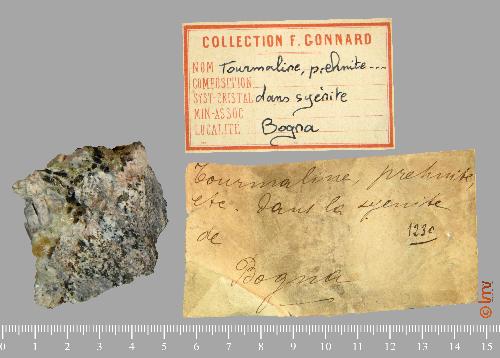 COLLECTION F. GONNARD
NOM Tourmaline, prehnite---
COMPOSITION
SYST-CRISTAL dans syénite
MIN-ASSOC
LOCALITÉ Bogna
Tourmaline, prehnite,
etc. dans la syenite
de 1230
Bogna
0 1 2 3 4 5 6 7 8 9 10 11 12 13 14 15